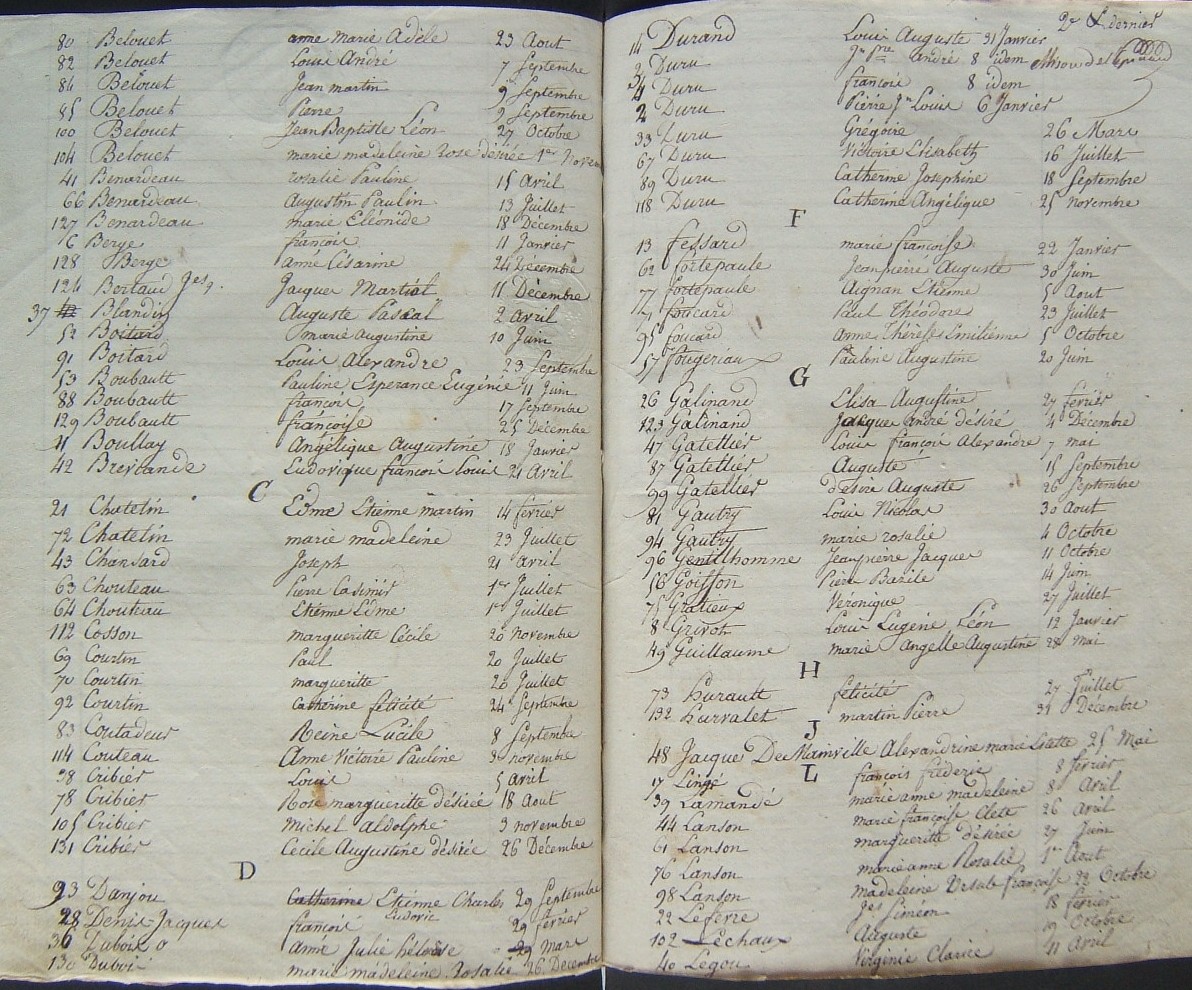 80 Belouet anne marie Adèle 23 Aout
82 Belouet Louis André 7 Septembre
84 Belouet Jean martin 9 Septembre
85 Belouet Pierre 9 Septembre
100 Belouet Jean Baptiste Léon 27 Octobre
104 Belouet marie madeleine Rose désirée 1er Novem
41 Benardeau rosalie Pauline 15 Avril
66 Benardeau Augustin Paulin 13 Juillet
127 Benardeau marie Eléonide 18 Décembre
6 Berge françois 11 Janvier
128 Berge Aimé Césarine 24 Décembre
124 Bertaud Jacques Martial 11 Décembre
37 Blandin Auguste Pascal 2 Avril
52 Boitard marie Augustine 10 Juin
91 Boitard Louis Alexandre 23 Septembre
53 Boubault Pauline Esperance Eugénie 11 Juin
88 Boubault françois 17 Septembre
129 Boubault françoise 25 Décembre
11 Boullay Angélique Augustine 18 Janvier
42 Ludovique françois Louis 21 Avril
C
21 Chatelin Edme Etienne martin 14 février
72 Chatelin marie madeleine 23 Juillet
43 Chansard Joseph 21 Avril
63 Chouteau Pierre Casimir 1er Juillet
64 Chouteau Etienne Edme 1er Juillet
112 Cosson margueritte Cécile 20 Novembre
69 Courtin Paul 20 Juillet
70 Courtin margueritte 20 Juillet
92 Courtin Cathérine félicité 24 Septembre
83 Coutadeur Reine Lucile 8 Septembre
114 Couteau Anne Victoire Pauline 3 novembre
38 Cribier Louis 5 avril
78 Cribier Rose margueritte désirée 18 Aout
105 Cribier Michel Aldolphe 3 novembre
131 Cribier Cécile Augustine désirée 26 Décembre
D
93 Danjou Catherine Etienne Charles 29 Septembre
28 Denis Jacques françois Ludovic 29 février
36 Dubois Anne Julie héloïse 29 Mars
130 Dubois marie madeleine Rosalie 26 Décembre
2e & dernier
14 Durand Louis Auguste 31 Janvier
3 Duru andré 8 idem
4 Duru françois 8 idem
2 Duru Pierre Jn Louis 6 Janvier
33 Duru Grégoire 26 Mars
67 Duru Victoire Elisabeth 16 Juillet
89 Duru Catherine Josephine 18 Septembre
118 Duru Catherine Angélique 25 novembre
F
13 fessard marie françoise 22 Janvier
62 fortepaule Jean pierre Auguste 30 Juin
77 fortepaule Aignan Etienne 5 Aout
71 foucard Paul Théodore 23 Juillet
95 foucard Anne Thérèse Emilienne 5 Octobre
57 fougeriaux Pauline Augustine 20 Juin
G
26 Galinand Elisa Augustine 27 février
123 Galinand Jacques andré désiré 4 Décembre
47 Gatellier Louis françois Alexandre 7 mai
87 Gatellier Auguste 15 Septembre
99 Gatellier désiré Auguste 26 Septembre
81 Gautry Louis Nicolas 30 Aout
94 Gautry marie rosalie 4 Octobre
96 Gentilhomme Jean pierre Jacques 11 Octobre
56 Goiffon Pierre Basile 14 Juin
75 Gratieux Véronique 27 Juillet
8 Grivot Louis Eugène Léon 12 Janvier
49 Guillaume marie Angelle Augustine 28 Mai
H
73 hurault félicité 27 Juillet
132 hurvalet martin Pierre 31 Décembre
J
48 Jacque De Mainville Alexandrine marie 25 Mai
L
17 Lingé françois frédéric 8 février
39 Lamandé marie anne madeleine 8 Avril
44 Lanson marie françoise Clete 26 avril
61 Lanson margueritte désirée 27 Juin
76 Lanson marie anne Rosalie 1er Aout
98 Lanson madeleine Ursule françoise 22 Octobre
22 Lefevre Siméon 18 février
102 Lechaux Auguste 19 Octobre
40 Legou Virginie Clarice 11 Avril